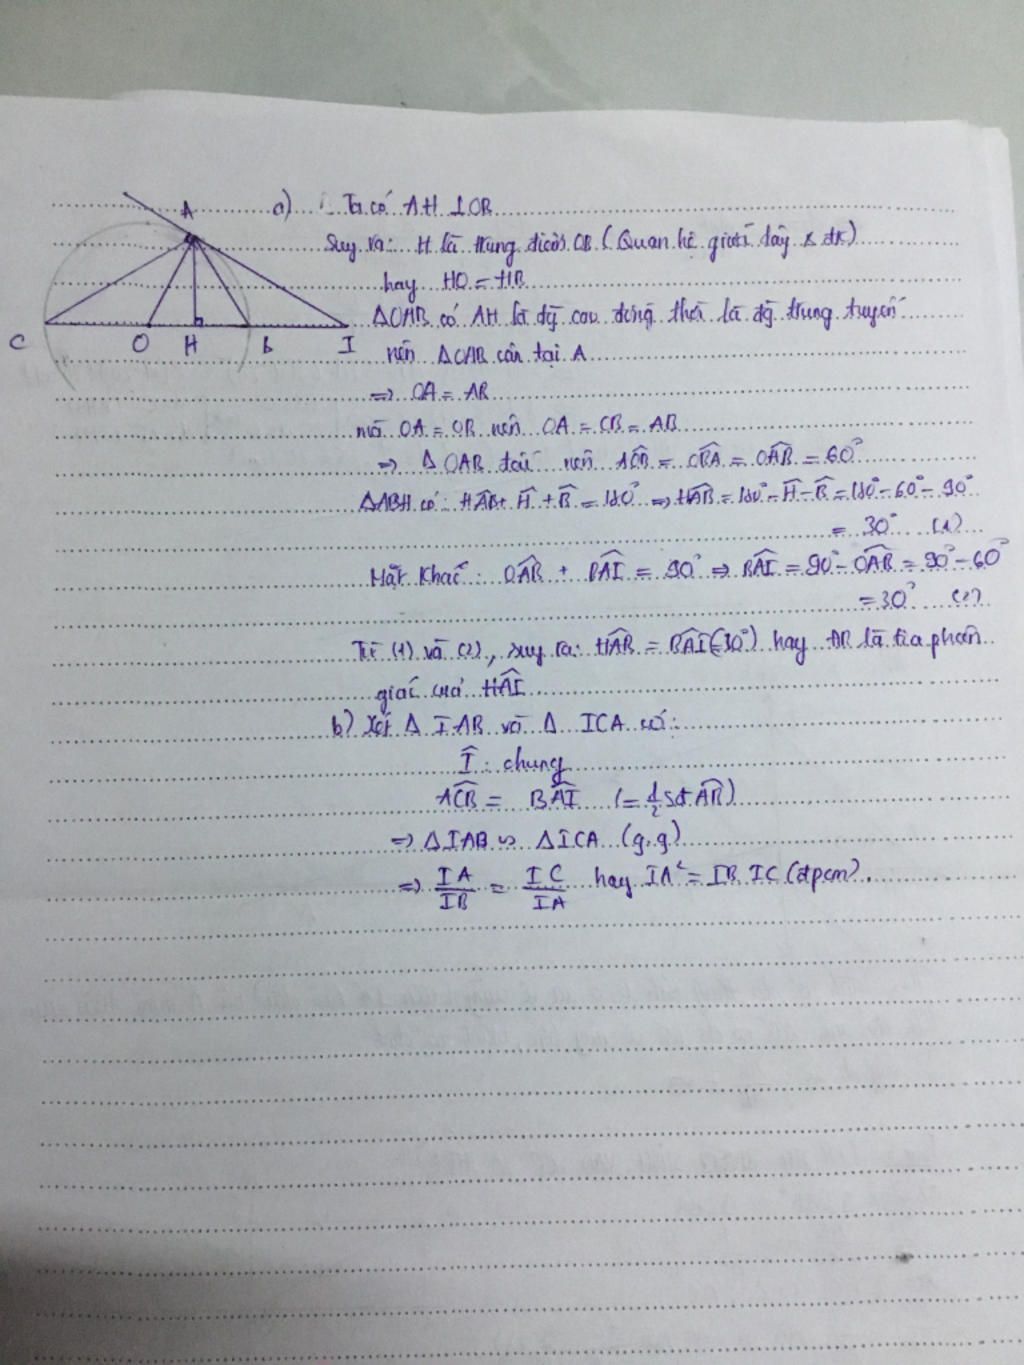 A
C
O
H
b
I
a) Ta có AH ⊥ OB
Suy ra: H là trung điểm OB (Quan hệ giữa dây & đk)
hay HO = HB
ΔOAB có AH là đg cao đồng thời là đg trung tuyến
nên ΔOAB cân tại A
=> OA = AB
mà OA = OB nên OA = OB = AB
=> Δ OAB đều nên AOB̂ = OBÂ = OÂB = 60°
ΔABH có: HÂB + Ĥ + B̂ = 180° => HÂB = 180° - Ĥ - B̂ = 180° - 60° - 90°
= 30° (1)
Mặt khác: OÂB + BÂI = 90° => BÂI = 90° - OÂB = 90° - 60°
= 30° (2)
Từ (1) và (2), suy ra: HÂB = BÂI (=30°) hay AB là tia phân
giác của HÂI
b) Xét Δ IAB và Δ ICA có:
Î: chung
AĈB = BÂI (= 1/2 sđ AB)
=> ΔIAB ∽ ΔICA (g.g)
=> IA/IB = IC/IA hay IA² = IB.IC (đpcm).